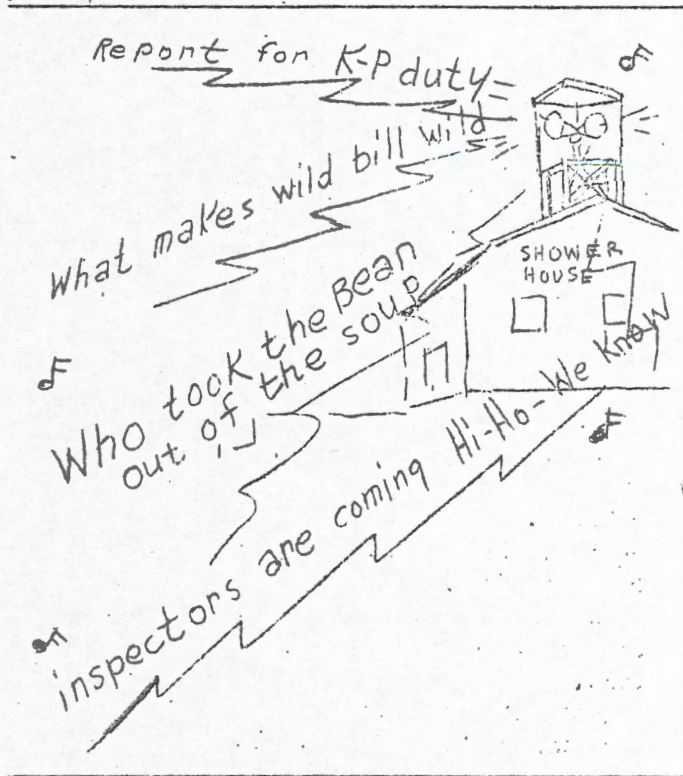 Report for K-P duty
What makes wild bill wild
SHOWER
HOUSE
Who took the Bean
out of the soup
inspectors are coming Hi-Ho-We Know